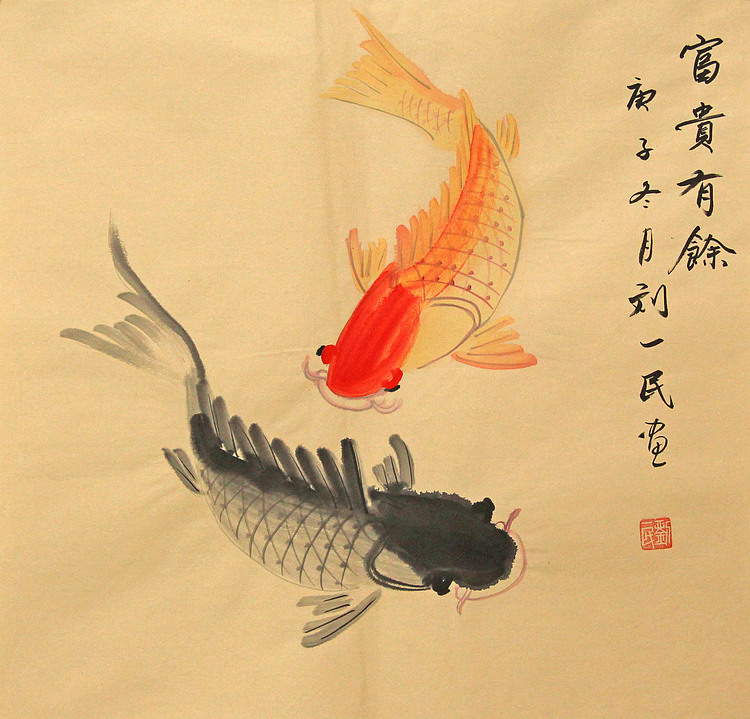 富貴有餘
庚子冬月刘一民画
劉一民